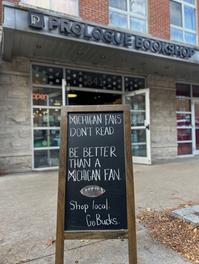 PROLOGUE BOOKSHOP
841
open
MICHIGAN FANS
DON'T READ
BE BETTER
THAN A
MICHIGAN FAN.
Shop local.
Go Bucks.